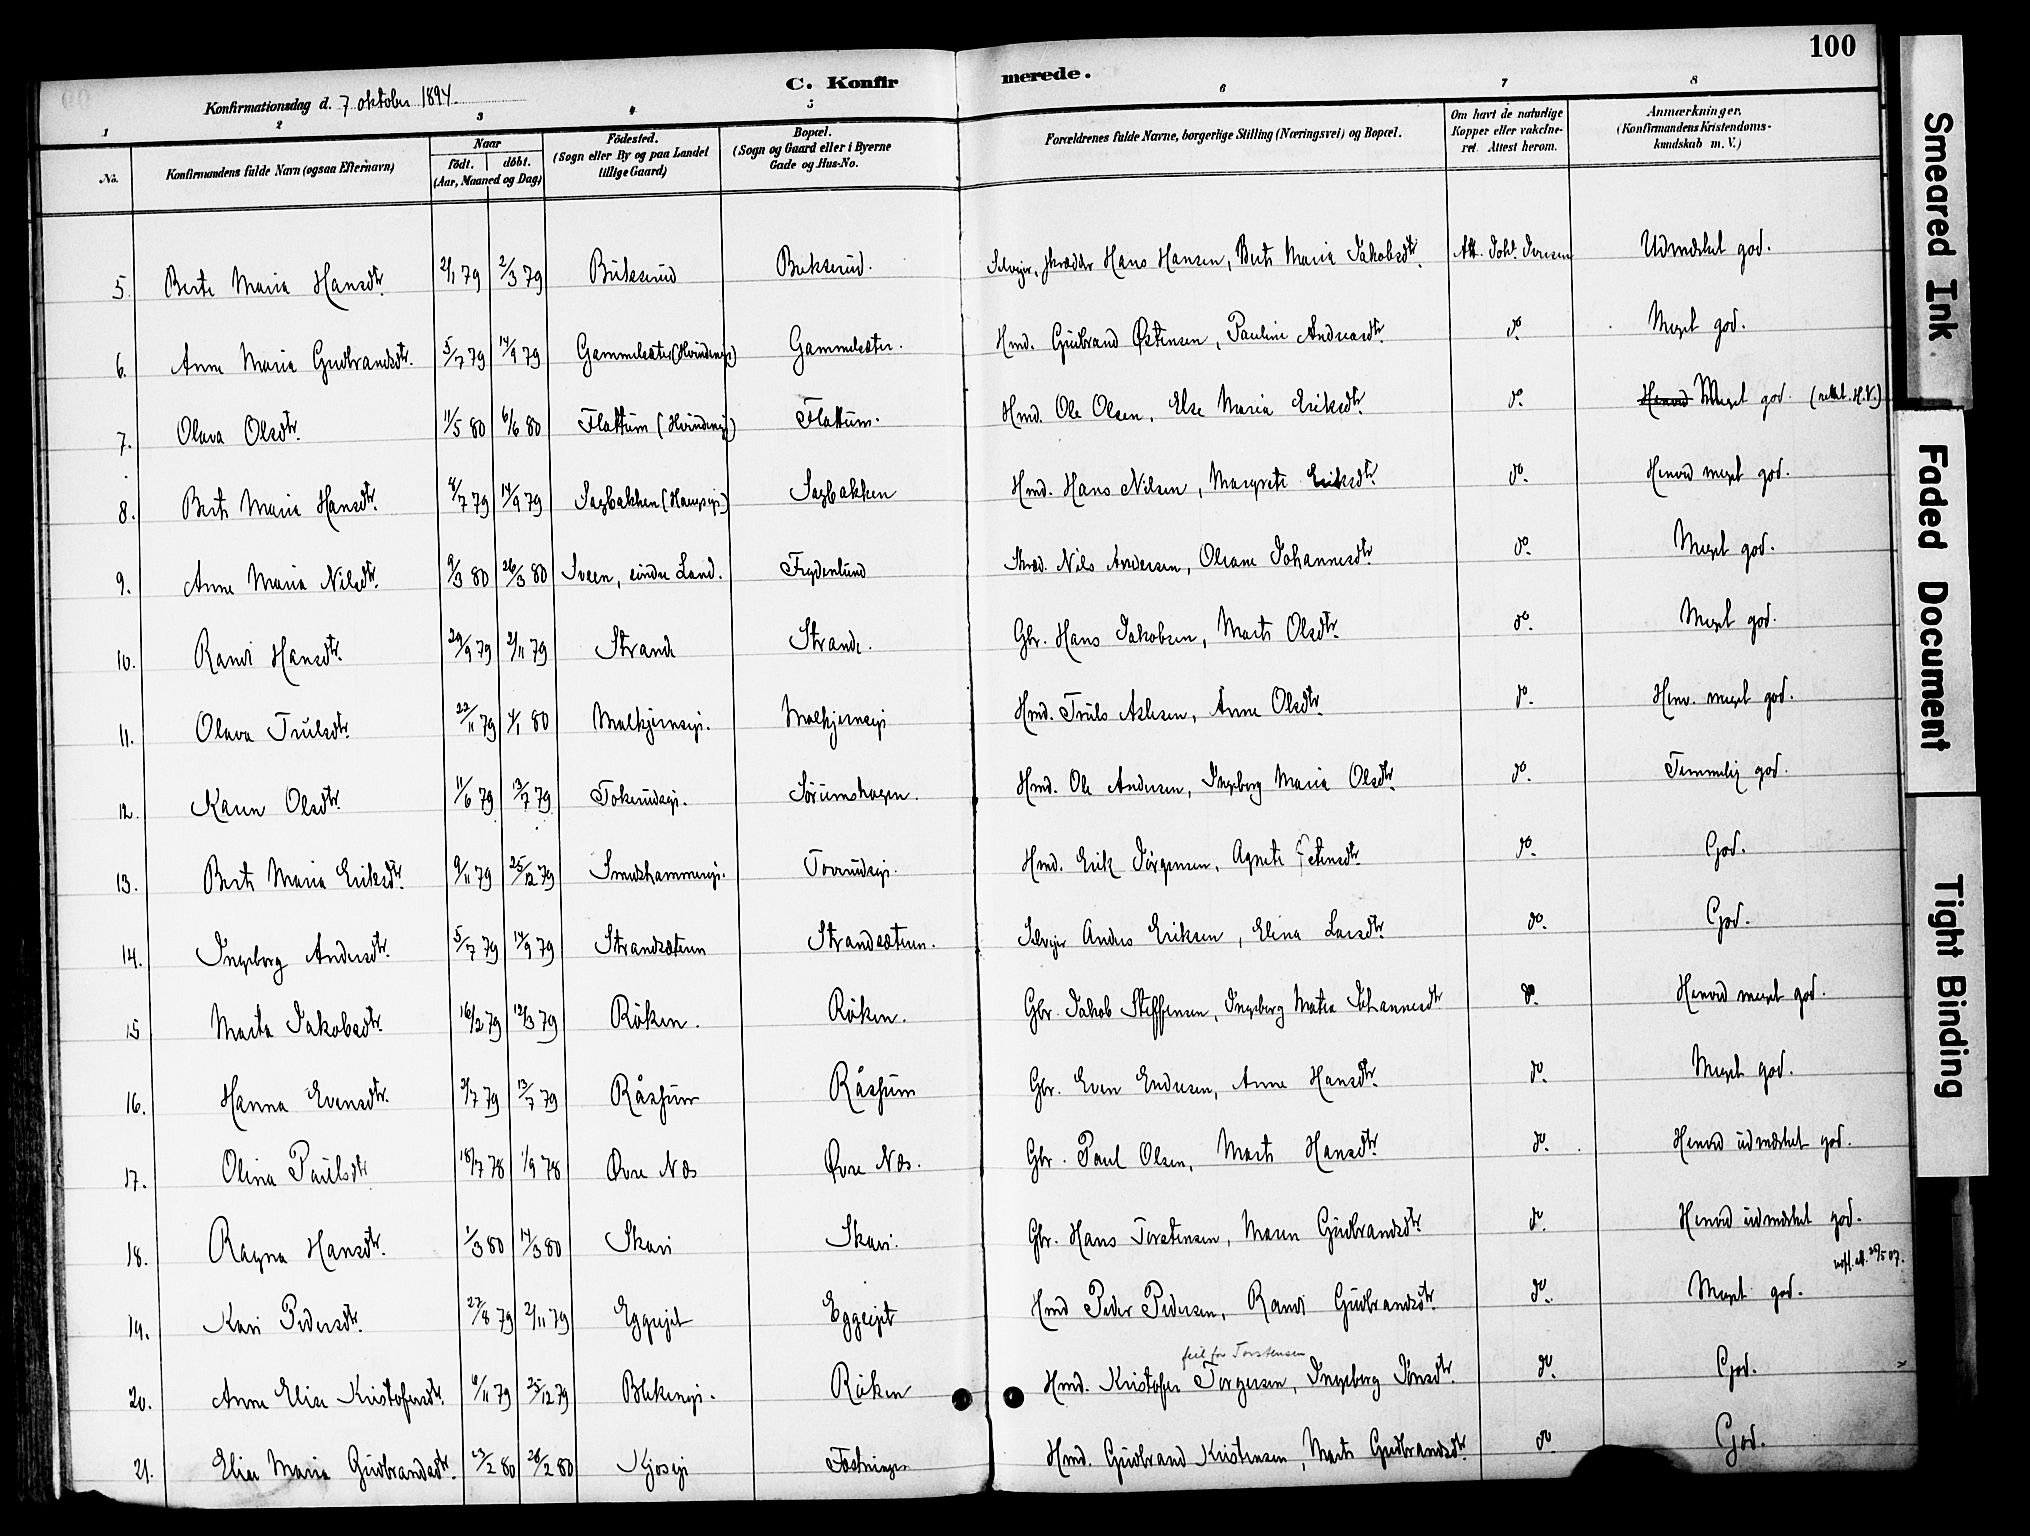 100
C. Konfirmerede.
Konfirmationsdag d. 7 oktober 1894.
1 2 3 4 5 6 7 8
No. Konfirmandens fulde Navn (ogsaa Efternavn) Naar födt. döbt. (Aar, Maaned og Dag) Födested. (Sogn eller By og paa Landet tillige Gaard) Bopæl. (Sogn og Gaard eller i Byerne Gade og Hus-No. Forældrenes fulde Navne, borgerlige Stilling (Næringsvei) og Bopæl. Om havt de naturlige Kopper eller vakcineret. Attest herom. Anmærkninger. (Konfirmandens Kristendomskundskab m. V.)
5. Berte Maria Hansdtr. 2/1 79 2/3 79 Bukserud Bukserud. Selvejer, skrædder Hans Hansen, Berte Maria Jakobsdtr. Att. Joh. Iversen Udmærket god.
6. Anne Maria Gudbrandsdtr. 5/7 79 14/9 79 Gammelsæter Gammelsæter. Hmd. Gudbrand Østensen, Pauline Andreasdtr. do. Meget god.
7. Olava Olsdtr. 11/5 80 6/6 80 Flattum Flattum. Hmd. Ole Olsen, Else Maria Eriksdtr. do. Henved Meget god. (rettet. H.V.)
8. Berte Maria Hansdtr. 4/7 79 14/9 79 Sagbakken Sagbakken Hmd. Hans Nilsen, Margrete Eriksdtr. do. Henved meget god.
9. Anne Maria Nilsdtr. 9/3 80 26/3 80 Sveen, søndre Land. Frydenlund Skræd. Nils Andersen, Oleane Johannesdtr. do. Meget god.
10. Randi Hansdtr. 29/9 79 2/11 79 Strande Strande. Gbr. Hans Jakobsen, Marte Olsdtr. do. Meget god.
11. Olava Trulsdtr. 22/11 79 4/1 80 Malkjernsejet. Malkjernsej Hmd. Truls Aslesen, Anne Olsdtr. do. Henv. meget god.
12. Karen Olsdtr. 11/6 79 13/7 79 Tokerudsej. Sørumshagen. Hmd. Ole Andersen, Ingeborg Maria Olsdtr. do. Temmelig god.
13. Berte Maria Eriksdtr. 9/11 79 25/12 79 Smedshammerej. Toverudsej. Hmd. Erik Jörgensen, Agnete do. God.
14. Ingeborg Andersdtr. 5/7 79 14/9 79 Strandsæteren Strandsæteren. Selvejer Anders Eriksen, Elina Larsdtr. do. God.
15 Marta Jakobsdtr. 16/2 79 12/3 79 Röken. Röken. Gbr. Jakob Steffensen, Ingeborg Matea Johannesdtr do. Henved meget god.
16. Hanna Evensdtr. 2/7 79 13/7 79 Råssum Råssum Gbr. Even Endresen, Anne Hansdtr. do. Meget god.
17. Olina Paulsdtr 18/7 78 1/9 78 Øvre Næs Øvre Næs. Gbr. Paul Olsen, Marte Hansdtr. do. Henved udmærket god.
18. Ragna Hansdtr. 1/3 80 14/3 80 Skari Skari. Gbr. Hans Torstensen, Maren Gudbrandsdtr. do. Henved udmærket god.
19. Kari Pedersdtr. 27/8 79 2/11 79 Eggejet Eggejet Hmd Peder Pedersen, Randi Gudbrandsdtr. do. Meget god.
feil for Torstensen
20. Anne Elise Kristofersdtr. 6/11 79 25/12 79 Blekenej. Röken Hmd. Kristofer Torgersen, Ingeborg Jönsdtr. do. God.
21. Elise Maria Gudbrandsdtr. 23/2 80 28/2 80 Kjosej Hmd. Gudbrand Kristensen, Marte Gudbrandsdtr do. God.
Smeared Ink
Faded Document
Tight Binding